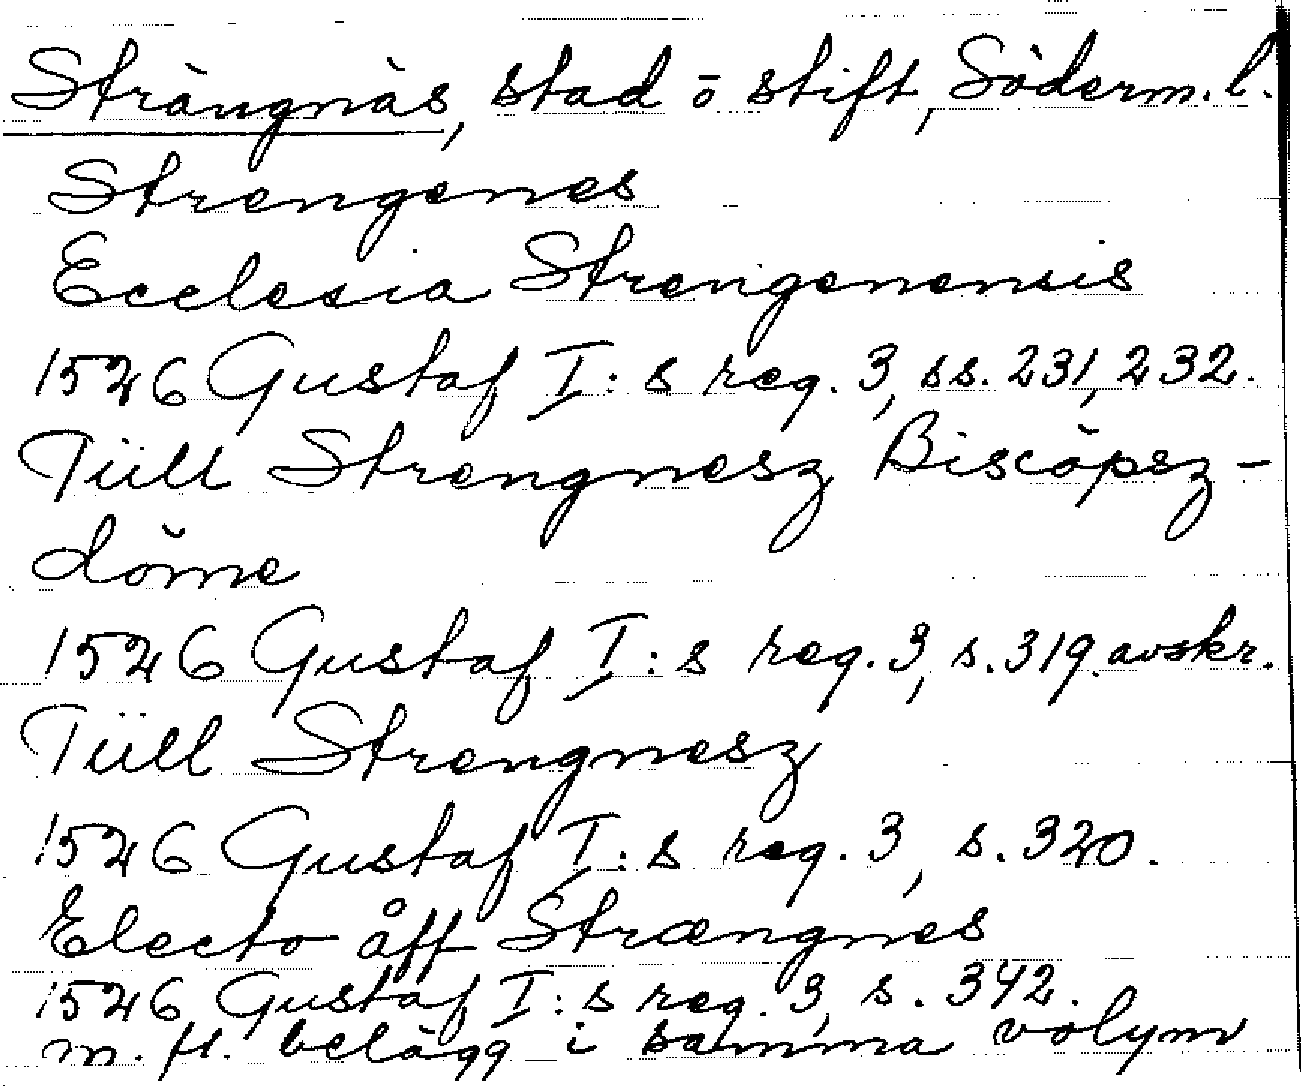 Strängnäs, stad o stift, Söderm. l.
Strengenes
Ecclesia Strengenensis
1526 Gustaf I:s reg. 3, ss. 231, 232.
Tiill Strengnesz Biscöpsz-
döme
1526 Gustaf I:s reg. 3, s. 319. avskr.
Tüll Strengnesz
1526 Gustaf I:s reg. 3, s. 320.
Electo åff Strængnes
1526 Gustaf I:s reg. 3, s. 342.
m. fl. belägg i samma volym